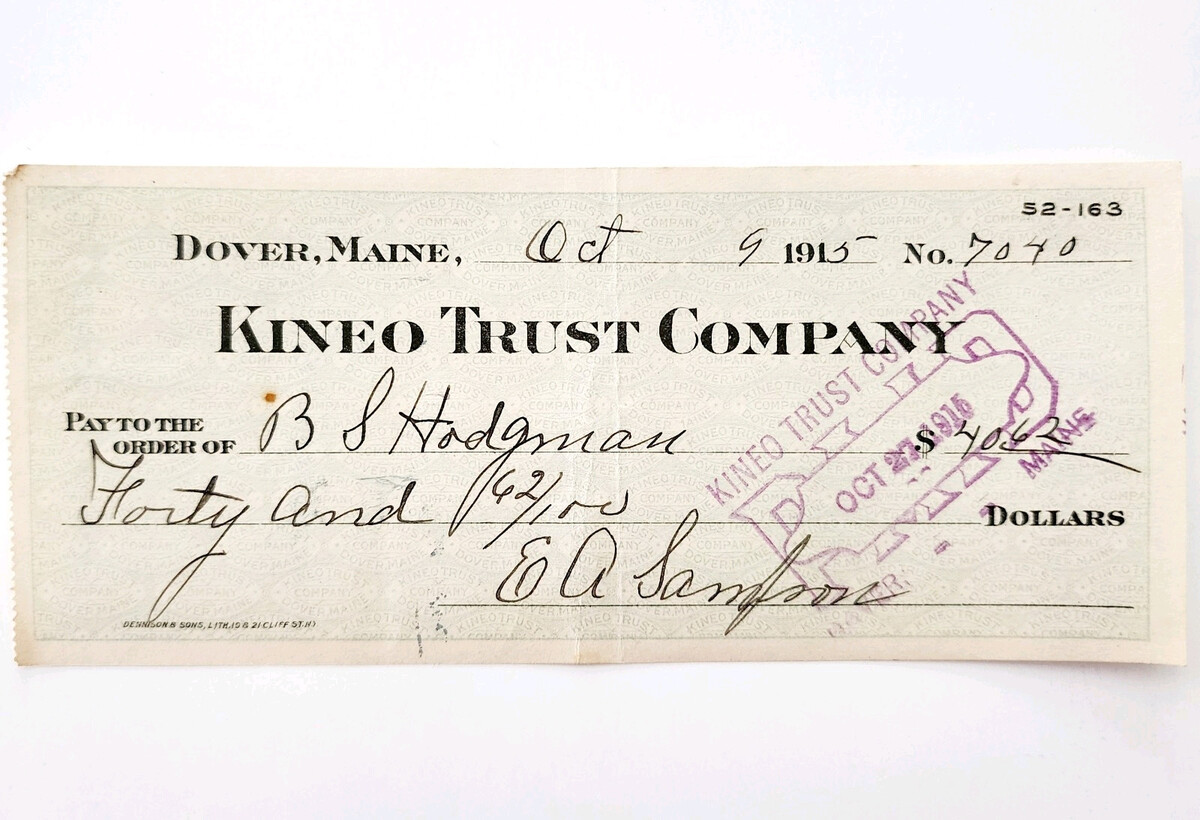 52-163
DOVER, MAINE, Oct 9 1915 No. 7040
KINEO TRUST COMPANY
PAY TO THE
ORDER OF B S Hodgman $ 40.62
Forty and 62/100 DOLLARS
E A Sampson
DENNISON & SONS, LITH. 19 & 21 CLIFF ST. N.Y.
KINEO TRUST COMPANY
PAID
OCT 27 1915
MAINE